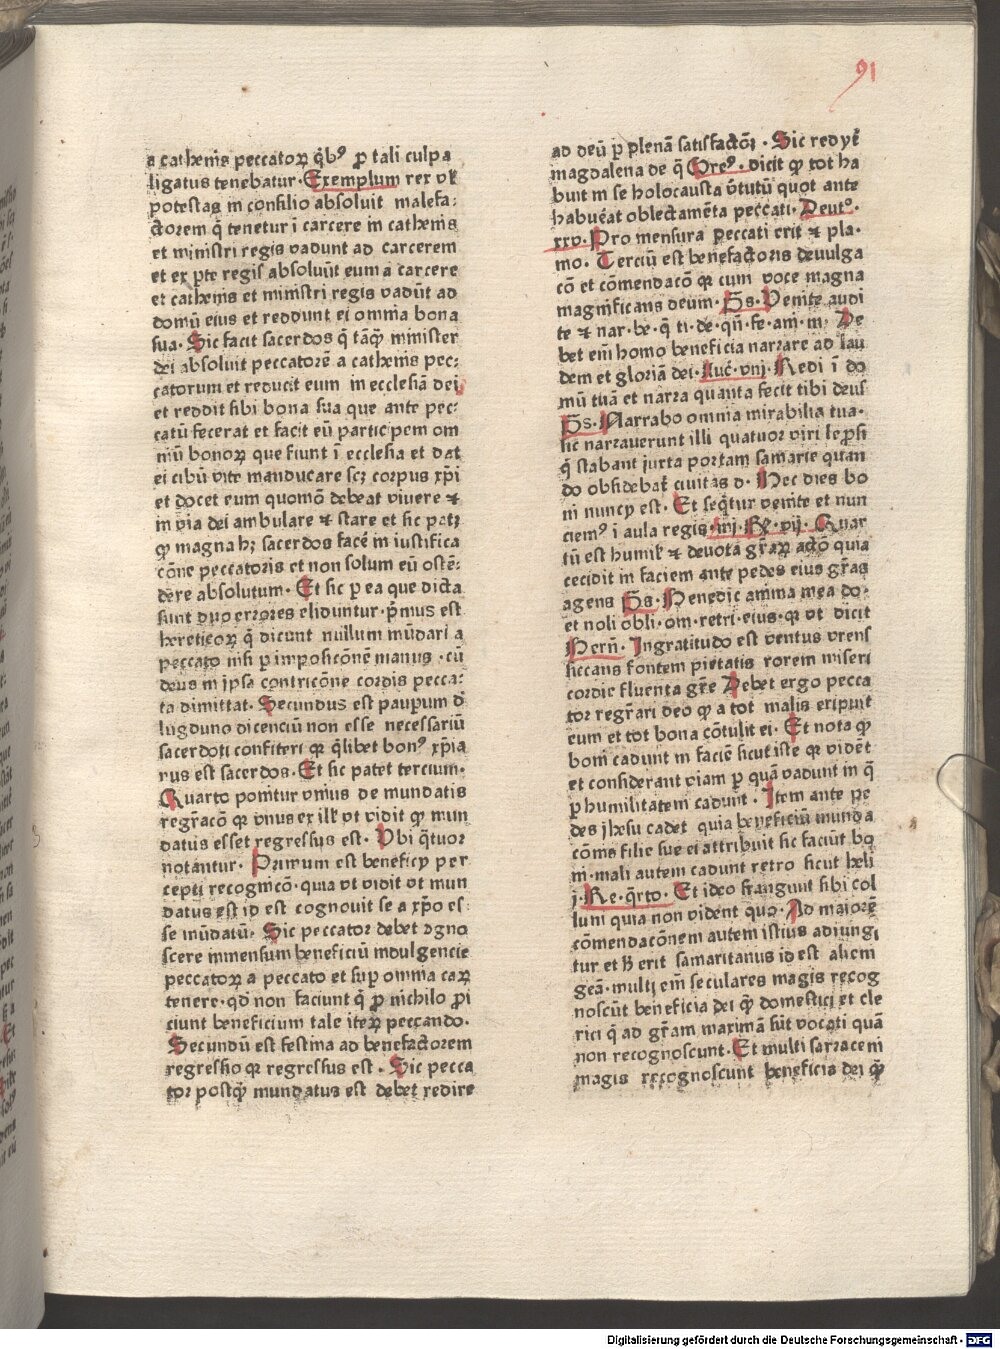 91
a cathenis peccatoꝝ q̇bꝰ ꝓ tali culpa
ligatus tenebatur · Exemplum rex vl̓
potestas in consilio absoluit malefa⸗
ctorem q̇ tenetur ī carcere in cathenis
et ministri regis vadunt ad carcerem
et ex ꝑte regis absoluūt eum a carcere
et cathenis et ministri regis vadūt ad
domū eius et reddunt ei omnia bona
sua · Sic facit sacerdos q̇ tāꝙ̄ minister
dei absoluit peccatorē a cathenis pec⸗
catorum et reducit eum in ecclesiā dei
et reddit sibi bona sua que ante pec⸗
catū fecerat et facit eū participem om
niū bonoꝝ que fiunt ī ecclesia et dat
ei cibū vite manducare scꝫ corpus xp̄i
et docet eum quomō debeat viuere ⁊
in via dei ambulare ⁊ stare et sic patꝫ
ꝙ magna hꝫ sacerdos facē in iustifica
cōne peccatoris et non solum eū ostē⸗
dere absolutum · Et sic ꝑ ea que dicta
sunt duo errores eliduntur · p̄mus est
hereticoꝝ q̇ dicunt nullum mūdari a
peccato nisi ꝑ imposicōnē manus · cū
deus in ipsa contricōne cordis pecca⸗
ta dimittat · Secundus est paupum d̓
lugduno dicenciū non esse necessariū
sacerdoti confiteri qꝛ q̇libet bonꝰ xp̄ia
nus est sacerdos · Et sic patet tercium ·
Quarto ponitur vnius de mundatis
regr̄acō qꝛ vnus ex ill̓ vt vidit ꝙ mun
datus esset regressus est · Vbi q̇tuor
notantur · Primum est beneficÿ per
cepti recognicō · quia vt vidit vt mun
datus est id est cognouit se a xp̄o es⸗
se mūdatū · Sic peccator debet ꝯgno
scere inmensum beneficiū indulgencie
peccatoꝝ a peccato et suꝑ omnia caꝝ
tenere · qd̓ non faciunt q̇ ꝓ nichilo ꝓi
ciunt beneficium tale iteꝝ peccando ·
Secundū est festina ad benefactorem
regressio qꝛ regressus est · Sic pecca
tor postꝙ̄ mundatus est debet redire
ad deū ꝑ plenā satisfactōꝫ · Sic redÿt
magdalena de q̇ Greꝰ · dicit ꝙ tot ha
buit in se holocausta v̄tutū quot ante
habuēat oblectamēta peccati · Deutꝰ ·
xxv · Pro mensura peccati erit ⁊ pla⸗
mo · Terciū est benefactoris deuulga
cō et cōmendacō qꝛ cum voce magna
magnificans deum · Ps · Venite audi
te ⁊ nar · be · q̇ ti · de · qn̄ · fe · ani · m · De
bet em̄ homo beneficia narrare ad lau
dem et gloriā dei · Luc̄ · viij · Redi ī do
mū tuā et narra quanta fecit tibi deus
Ps · Narrabo omnia mirabilia tua ·
sic narrauerunt illi quatuor viri leprosi
q̇ stabant iuxta portam samarie quan
do obsidebat̄ ciuitas d · Hec dies bo
ni nuncÿ est · Et seq̇tur venite et nun
ciemꝰ ī aula regis · iiij · Re · vij · Quar
tū est humil̓ ⁊ deuota gr̄aꝝ actō quia
cecidit in faciem ante pedes eius gr̄as
agens Ps · Benedic anima mea do⸗
et noli obli · om · retri · eius · qꝛ vt dicit
Bern̄ · Ingratitudo est ventus vrens
siccans fontem pietatis rorem miseri
cordie fluenta gr̄e Debet ergo pecca
tor regr̄ari deo ꝙ a tot malis eripuit
eum et tot bona cōtulit ei · Et nota ꝙ
boni cadunt in faciē sicut iste qꝛ vidēt
et considerant viam ꝑ quā vadunt in q̄
ꝑ humilitatem cadunt · Item ante pe
des jhesu cadet quia beneficiū munda
cōnis filie sue ei attribuit sic faciūt bo
ni · mali autem cadunt retro sicut heli
j · Re · q̇rto · Et ideo frangunt sibi col
lum quia non vident quo · Ad maiorē
cōmendacōnem autem istius adiungi
tur et h̓ erit samaritanus id est alieni
geā · multi em̄ seculares magis recog
noscūt beneficia dei ꝙ̄ domestici et cle
rici q̇ ad gr̄am maximā sūt vocati quā
non recognoscunt · Et multi sarraceni
magis recognoscunt beneficia dei ꝙ̄
Digitalisierung gefördert durch die Deutsche Forschungsgemeinschaft - DFG